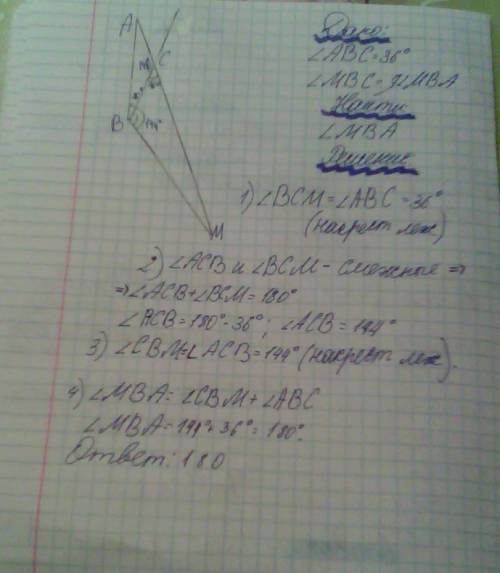 A
C
B
M
Дано:
∠ABC=36°
∠MBC=∠MBA
Найти:
∠MBA
Решение:
1) ∠BCM=∠ABC=36°
(накрест леж.)
2) ∠ACB и ∠BCM - смежные =>
=> ∠ACB+∠BCM=180°
∠ACB=180°-36°; ∠ACB=144°
3) ∠CBM=∠ACB=144° (накрест леж).
4) ∠MBA=∠CBM+∠ABC
∠MBA=144°+36°=180°.
Ответ: 180